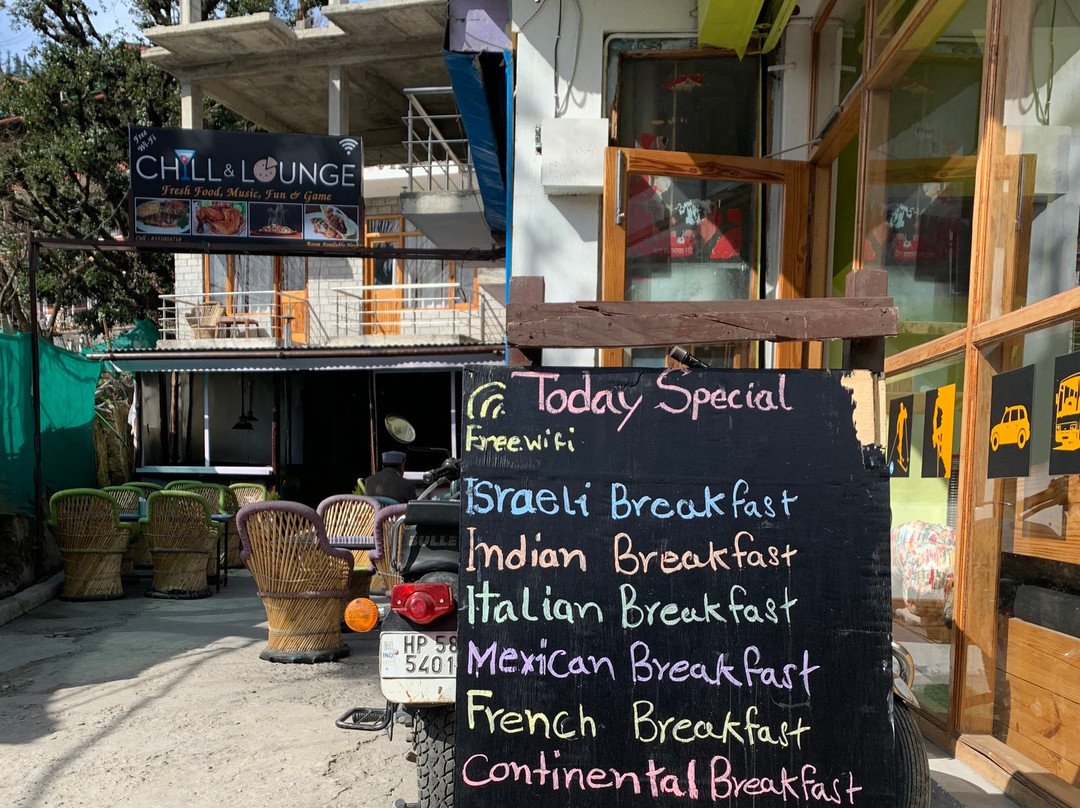 Free
Wi-Fi
CHILL & LOUNGE
Fresh Food, Music, Fun & Game
Today Special
Free.wifi
Israeli Breakfast
Indian Breakfast
Italian Breakfast
Mexican Breakfast
French Breakfast
Continental Breakfast
BULLE
IND
HP 58
5401